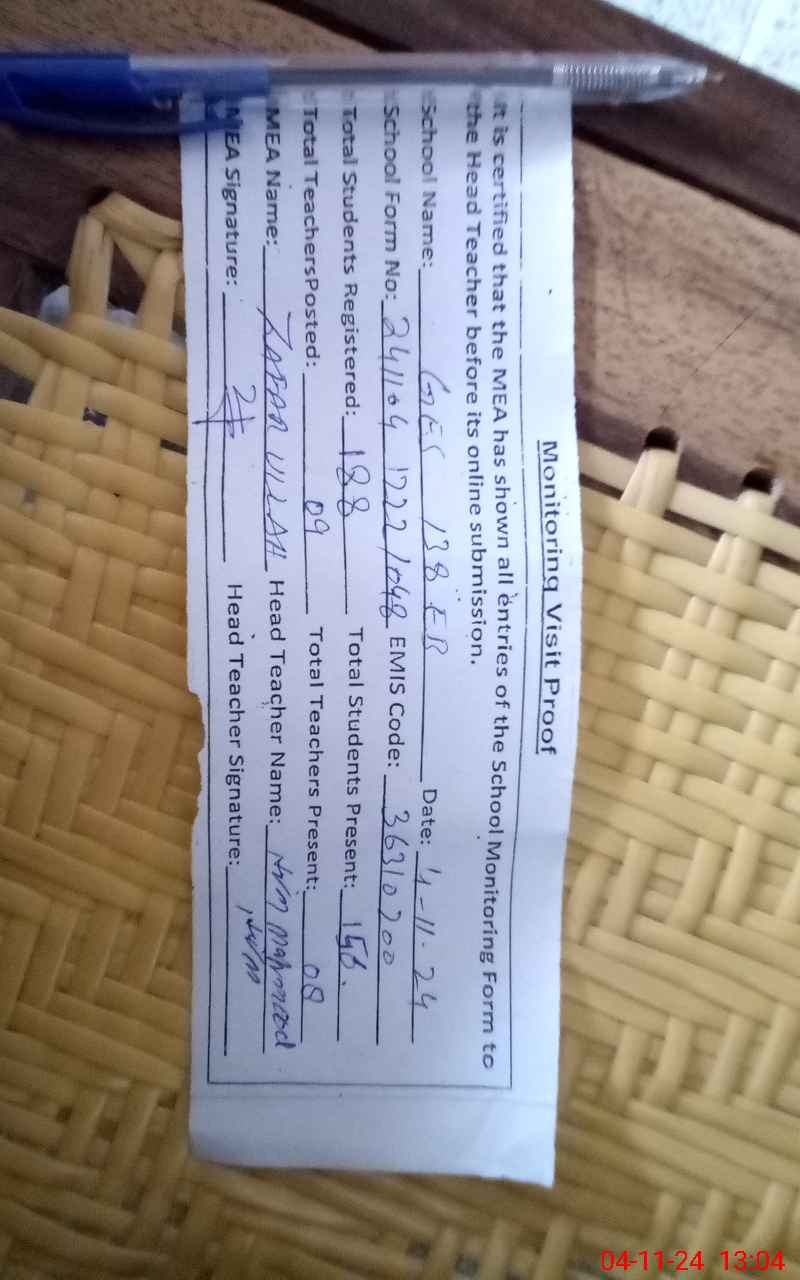 Monitoring Visit Proof
It is certified that the MEA has shown all entries of the School Monitoring Form to
the Head Teacher before its online submission.
School Name: GES 138 EB Date: 4-11-24
School Form No: 241104 1222 1048 EMIS Code: 36310200
Total Students Registered: 188 Total Students Present: 156.
Total TeachersPosted: 09 Total Teachers Present: 08
MEA Name: ZAFAR ULLAH Head Teacher Name: Mahmood
MEA Signature: Head Teacher Signature:
04-11-24 13:04